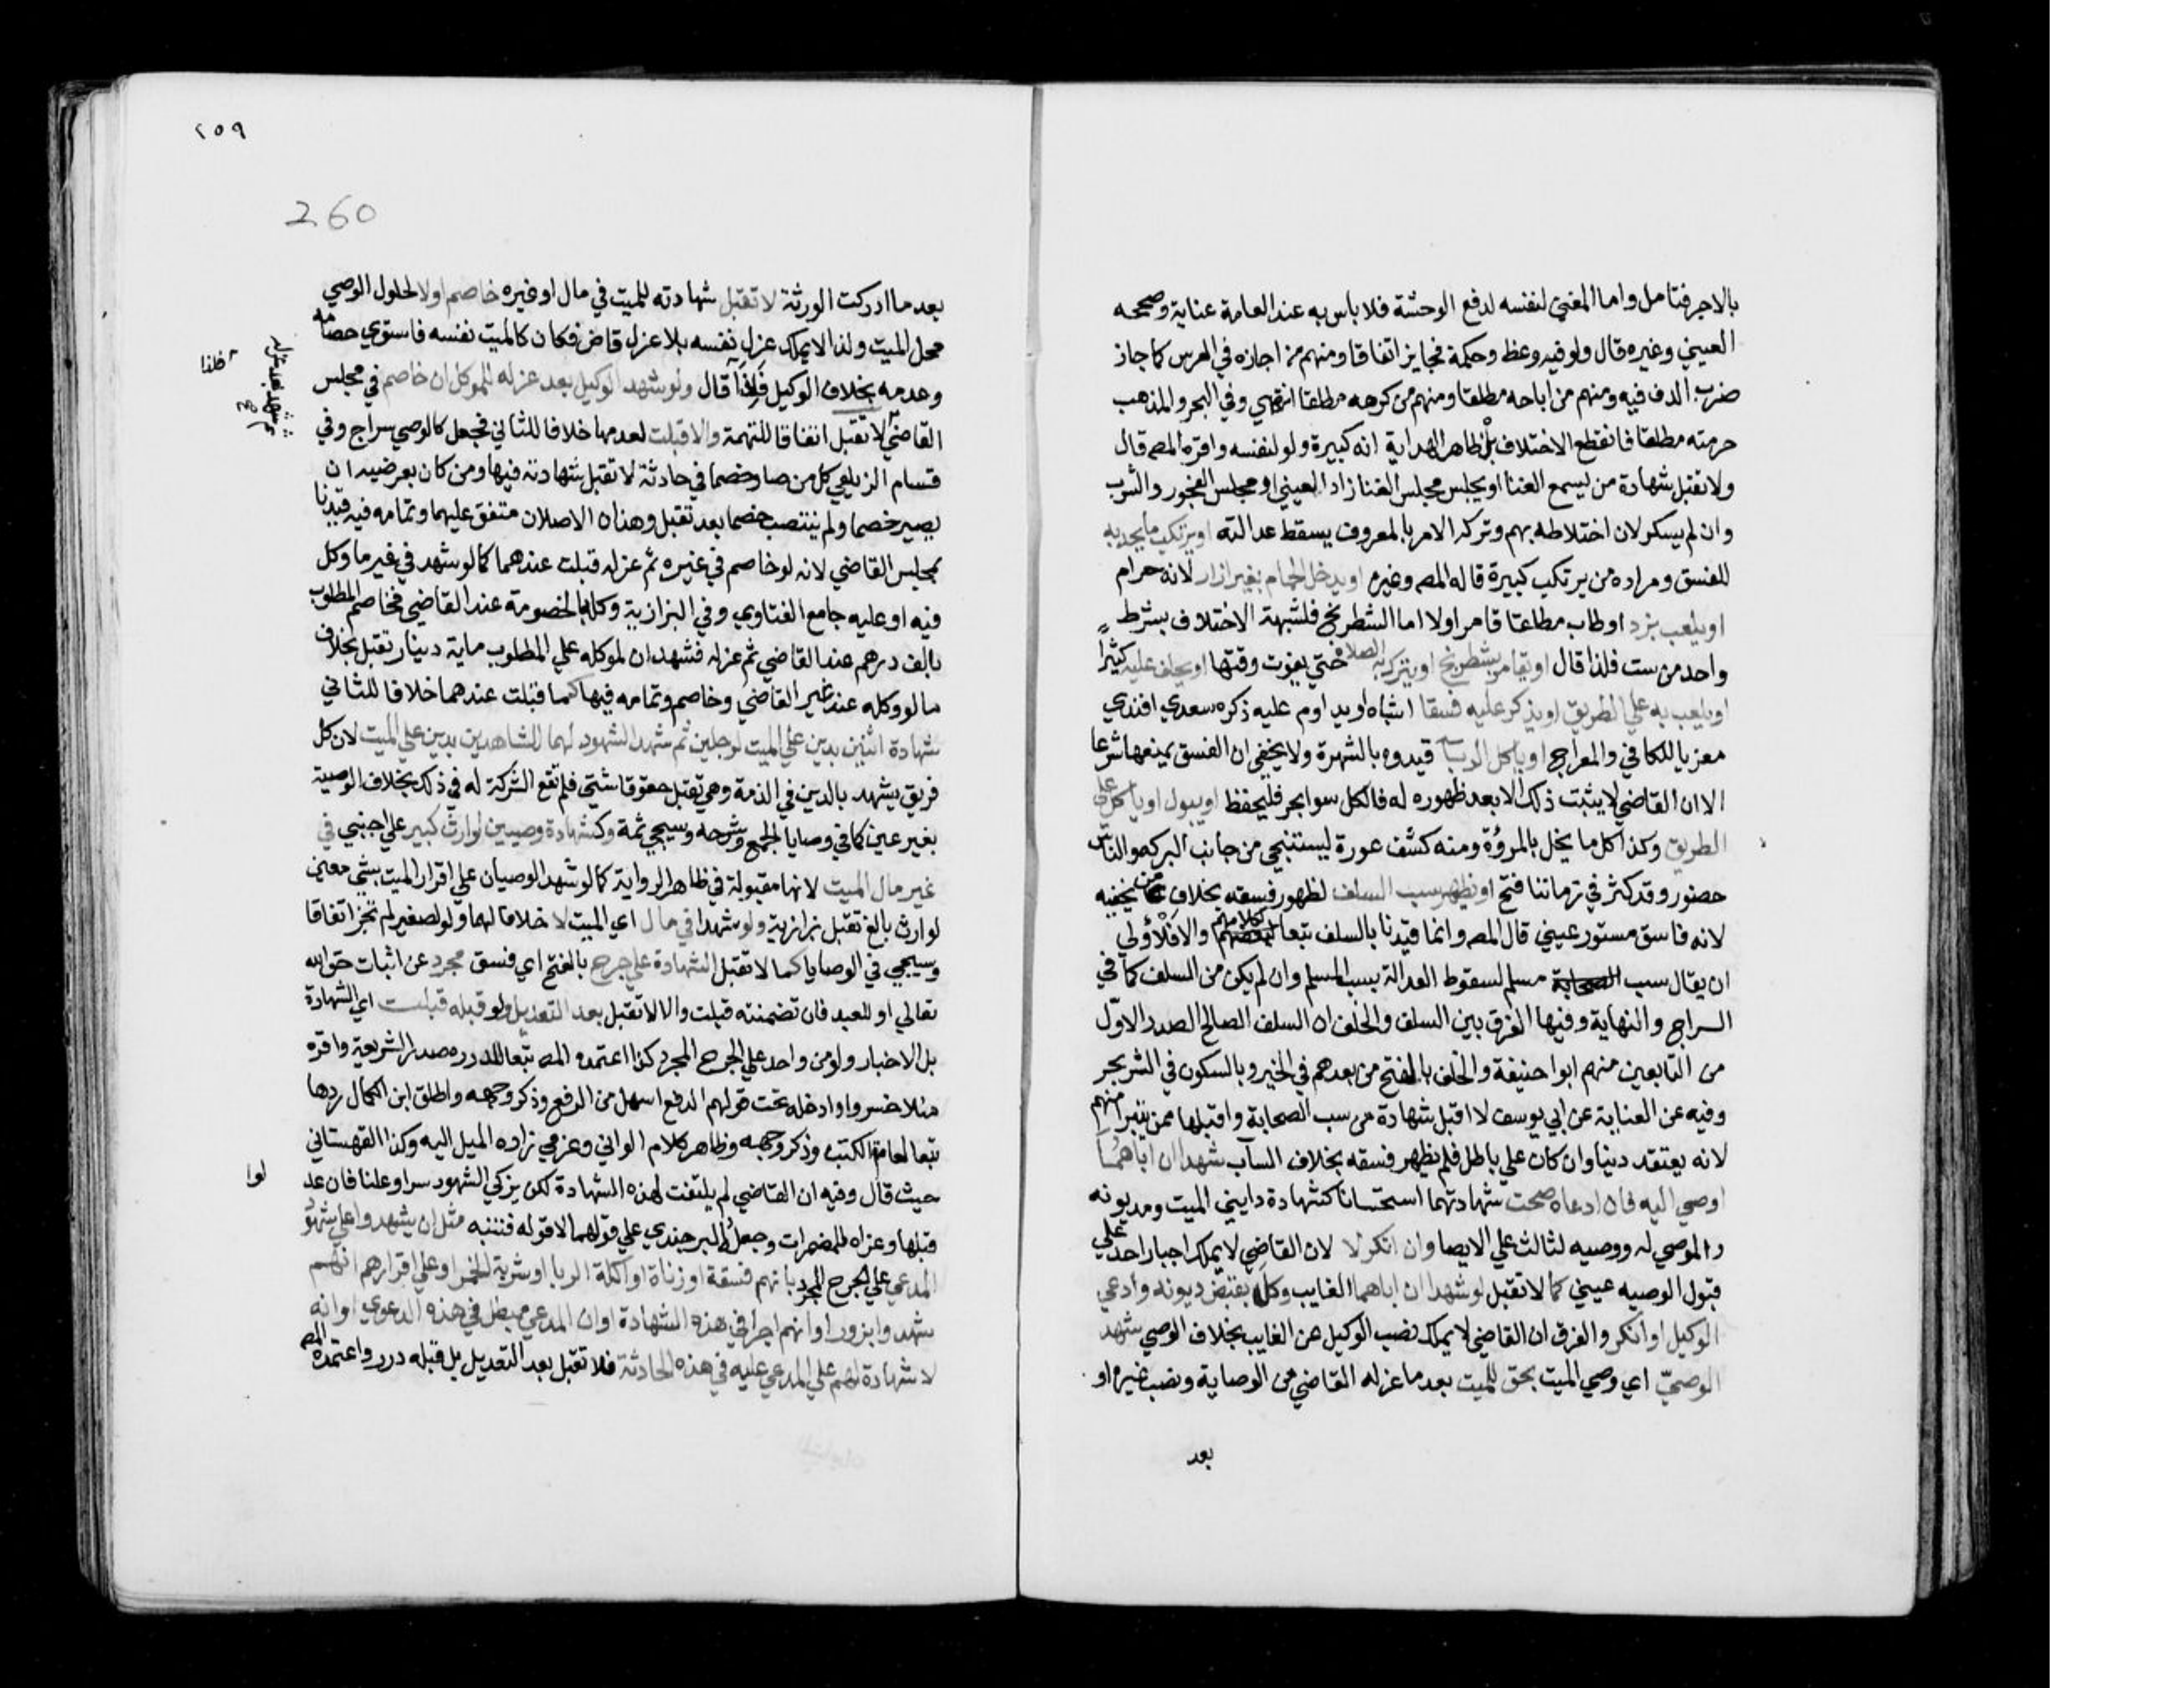 بالاجر فتامل واما المغني لنفسه لدفع الوحشة فلا باس به عند العامة عناية وصححه
العيني وغيره قال ولو فيه وعظ وحكمة فجايز اتفاقا ومنهم من اجازه في العرس كما جاز
ضرب الدف فيه ومنهم من اباحه مطلقا ومنهم من كرهه مطلقا انتهي وفي البحر والمذهب
حرمته مطلقا فانقطع الاختلاف بل ظاهر الهداية انه كبيرة ولو لنفسه واقره المصـ قال
ولا تقبل شهادة من يسمع الغنا او يجلس مجلس الغنا زاد العيني او مجلس الفجور والشرب
وان لم يسكر لان اختلاطه بهم وتركه الامر بالمعروف يسقط عدالته او يرتكب ما يحد به
للفسق ومراده من يرتكب كبيرة قاله المصـ وغيره او يدخل الحمام بغير ازار لانه حرام
او يلعب بنرد او طاب مطلقا قامر اولا اما الشطرنج فلشبهة الاختلاف بشرط
واحد من ست فلذا قال او يقامر بشطرنج او يترك به الصلاة حتي يفوت وقتها او يحلف عليه كثيرا
او يلعب به علي الطريق او يذكر عليه فسقا اشباه او يداوم عليه ذكره سعدي افندي
معزيا للكافي والمعراج او ياكل الربا قيدوه بالشهرة ولا يخفي ان الفسق يمنعها شرعا
الا ان القاضي لا يثبت ذلك الا بعد ظهوره له فالكل سوا بحر فليحفظ او يبول او ياكل علي
الطريق وكذا كل ما يخل بالمروة ومنه كشف عورة ليستنجي من جانب البركه والناس
حضور وقد كثر في زماننا فتح او يظهر سب السلف لظهور فسقه بخلاف من يخفيه
لانه فاسق مستور عيني قال المصـ وانما قيدنا بالسلف تبعا لكلامهم والا فالاولي
ان يقال سب مسلم لسقوط العدالة بسب المسلم وان لم يكن من السلف كما في
السراج والنهاية وفيها الفرق بين السلف والخلف ان السلف الصالح الصدر الاول
من التابعين منهم ابو حنيفة والخلف بالفتح من بعدهم في الخير وبالسكون في الشر بحر
وفيه عن العناية عن ابي يوسف لا اقبل شهادة من سب الصحابة واقبلها ممن يتبرا منهم
لانه يعتقد دينا وان كان علي باطل فلم يظهر فسقه بخلاف الساب شهدا ان اباهما
اوصي اليه فان ادعاه صحت شهادتهما استحسانا كشهادة دايني الميت ومديونه
والموصي له ووصيه لثالث علي الايصا وان انكر لا لان القاضي لا يملك اجبار احد علي
قبول الوصيه عيني كما لا تقبل لو شهدا ان اباهما الغايب وكله بقبض ديونه وادعي
الوكيل او انكر والفرق ان القاضي لا يملك نصب الوكيل عن الغايب بخلاف الوصي شهد
الوصي اي وصي الميت بحق للميت بعد ما عزله القاضي من الوصاية ونصب غيره او
بعد
٢٥٩
260
بعد ما ادركت الورثة لا تقبل شهادته للميت في مال او غيره خاصم اولا لحلول الوصي
محل الميت ولذا لا يملك عزل نفسه بلا عزل قاض فكان كالميت نفسه فاستوي خصامه
وعدمه بخلاف الوكيل فلذا قال ولو شهد الوكيل بعد عزله للموكل ان خاصم في مجلس
القاضي لا تقبل اتفاقا للتهمة والا قبلت لعدمها خلافا للثاني فجعل كالوصي سراج وفي
قسام الزيلعي كل من صار خصما في حادثة لا تقبل شهادته فيها ومن كان بعرضيه ان
يصير خصما ولم ينتصب خصما بعد تقبل وهذان الاصلان متفق عليهما وتمامه فيه قيدنا
بمجلس القاضي لانه لو خاصم في غيره ثم عزله قبلت عندهما كما لو شهد في غير ما وكل
فيه او عليه جامع الفتاوي وفي البزازية وكله بالخصومة عند القاضي فخاصم المطلوب
بالف درهم عند القاضي ثم عزله فشهد ان لموكله علي المطلوب ماية دينار تقبل بخلاف
ما لو وكله عند غير القاضي وخاصم وتمامه فيها كما قبلت عندهما خلافا للثاني
شهادة اثنين بدين علي الميت لرجلين ثم شهد الشهود لهما للشاهدين بدين علي الميت لان كل
فريق يشهد بالدين في الذمة وهي تقبل حقوقا شتي فلم تقع الشركة له في ذلك بخلاف الوصية
بغير عين كما في وصايا المجمع وشرحه وسيجي ثمة وكشهادة وصيين لوارث كبير علي اجنبي في
غير مال الميت لانها مقبولة في ظاهر الرواية كما لو شهد الوصيان علي اقرار الميت بشي معين
لوارث بالغ تقبل بزازية ولو شهدا في مال اي الميت لا خلافا لهما ولو لصغير لم تجز اتفاقا
وسيجي في الوصايا كما لا تقبل الشهادة علي جرح بالفتح اي فسق مجرد عن اثبات حق الله
تعالي او للعبد فان تضمنته قبلت والا لا تقبل بعد التعديل ولو قبله قبلت اي الشهادة
بل الاخبار ولو من واحد علي الجرح المجرد كذا اعتمده المصـ تبعا للدرر صدر الشريعة واقره
منلا خسرو وادخله تحت قولهم الدفع اسهل من الرفع وذكر وجهه واطلق ابن الكمال ردها
تبعا لعامة الكتب وذكر وجهه وظاهر كلام الواني وعزمي زاده الميل اليه وكذا القهستاني
حيث قال وفيه ان القاضي لم يلتفت لهذه الشهادة لكن يزكي الشهود سرا وعلنا فان عد لوا
قبلها وعزاه للمضمرات وجعله البرجندي علي قولهما لا قوله فتنبه مثل ان يشهدوا علي شهود
المدعي علي الجرح المجرد بانهم فسقة او زناة او اكلة الربا او شربة الخمر او علي اقرارهم انهم
شهدوا بزور او انهم اجرا في هذه الشهادة او ان المدعي مبطل في هذه الدعوي او انه
لا شهادة لهم علي المدعي عليه في هذه الحادثة فلا تقبل بعد التعديل بل قبله درر واعتمده المصـ